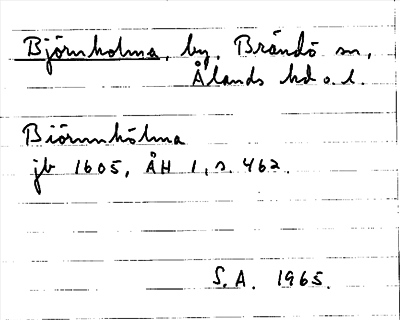 Björnholma, by, Brändö sn,
Ålands hd o. l.
Biörnnholma
jb 1605, ÅH 1, s. 462.
S.A. 1965.